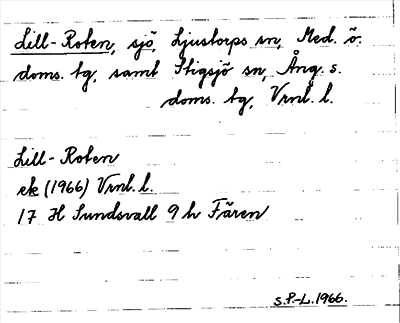 Lill-Roten, sjö, Ljustorps sn, Med. ö.
doms. tg, samt Stigsjö sn, Ång. s.
doms. tg, Vrnl. l.
Lill-Roten
ek (1966) Vrnl. l.
17 H Sundsvall 9 h Fären
S.P-L. 1966.